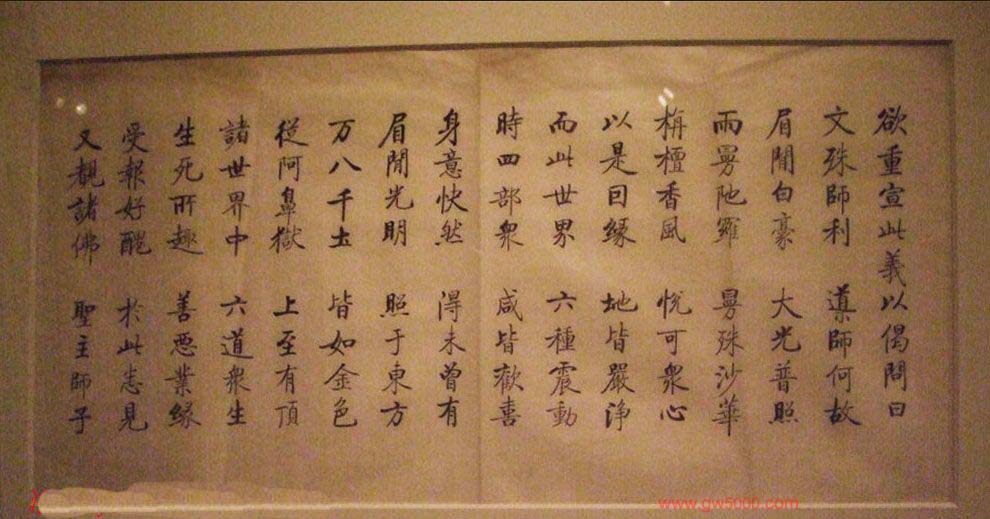 欲重宣此義以偈問曰
文殊師利 導師何故
眉間白豪 大光普照
雨曼陁羅 曼殊沙華
栴檀香風 悅可衆心
以是因縁 地皆嚴浄
而此世界 六種震動
時四部衆 咸皆歡喜
身意快然 得未曾有
眉間光明 照于東方
万八千土 皆如金色
從阿鼻獄 上至有頂
諸世界中 六道衆生
生死所趣 善惡業緣
受報好醜 於此悉見
又覩諸佛 聖主師子
www.gw5000.com